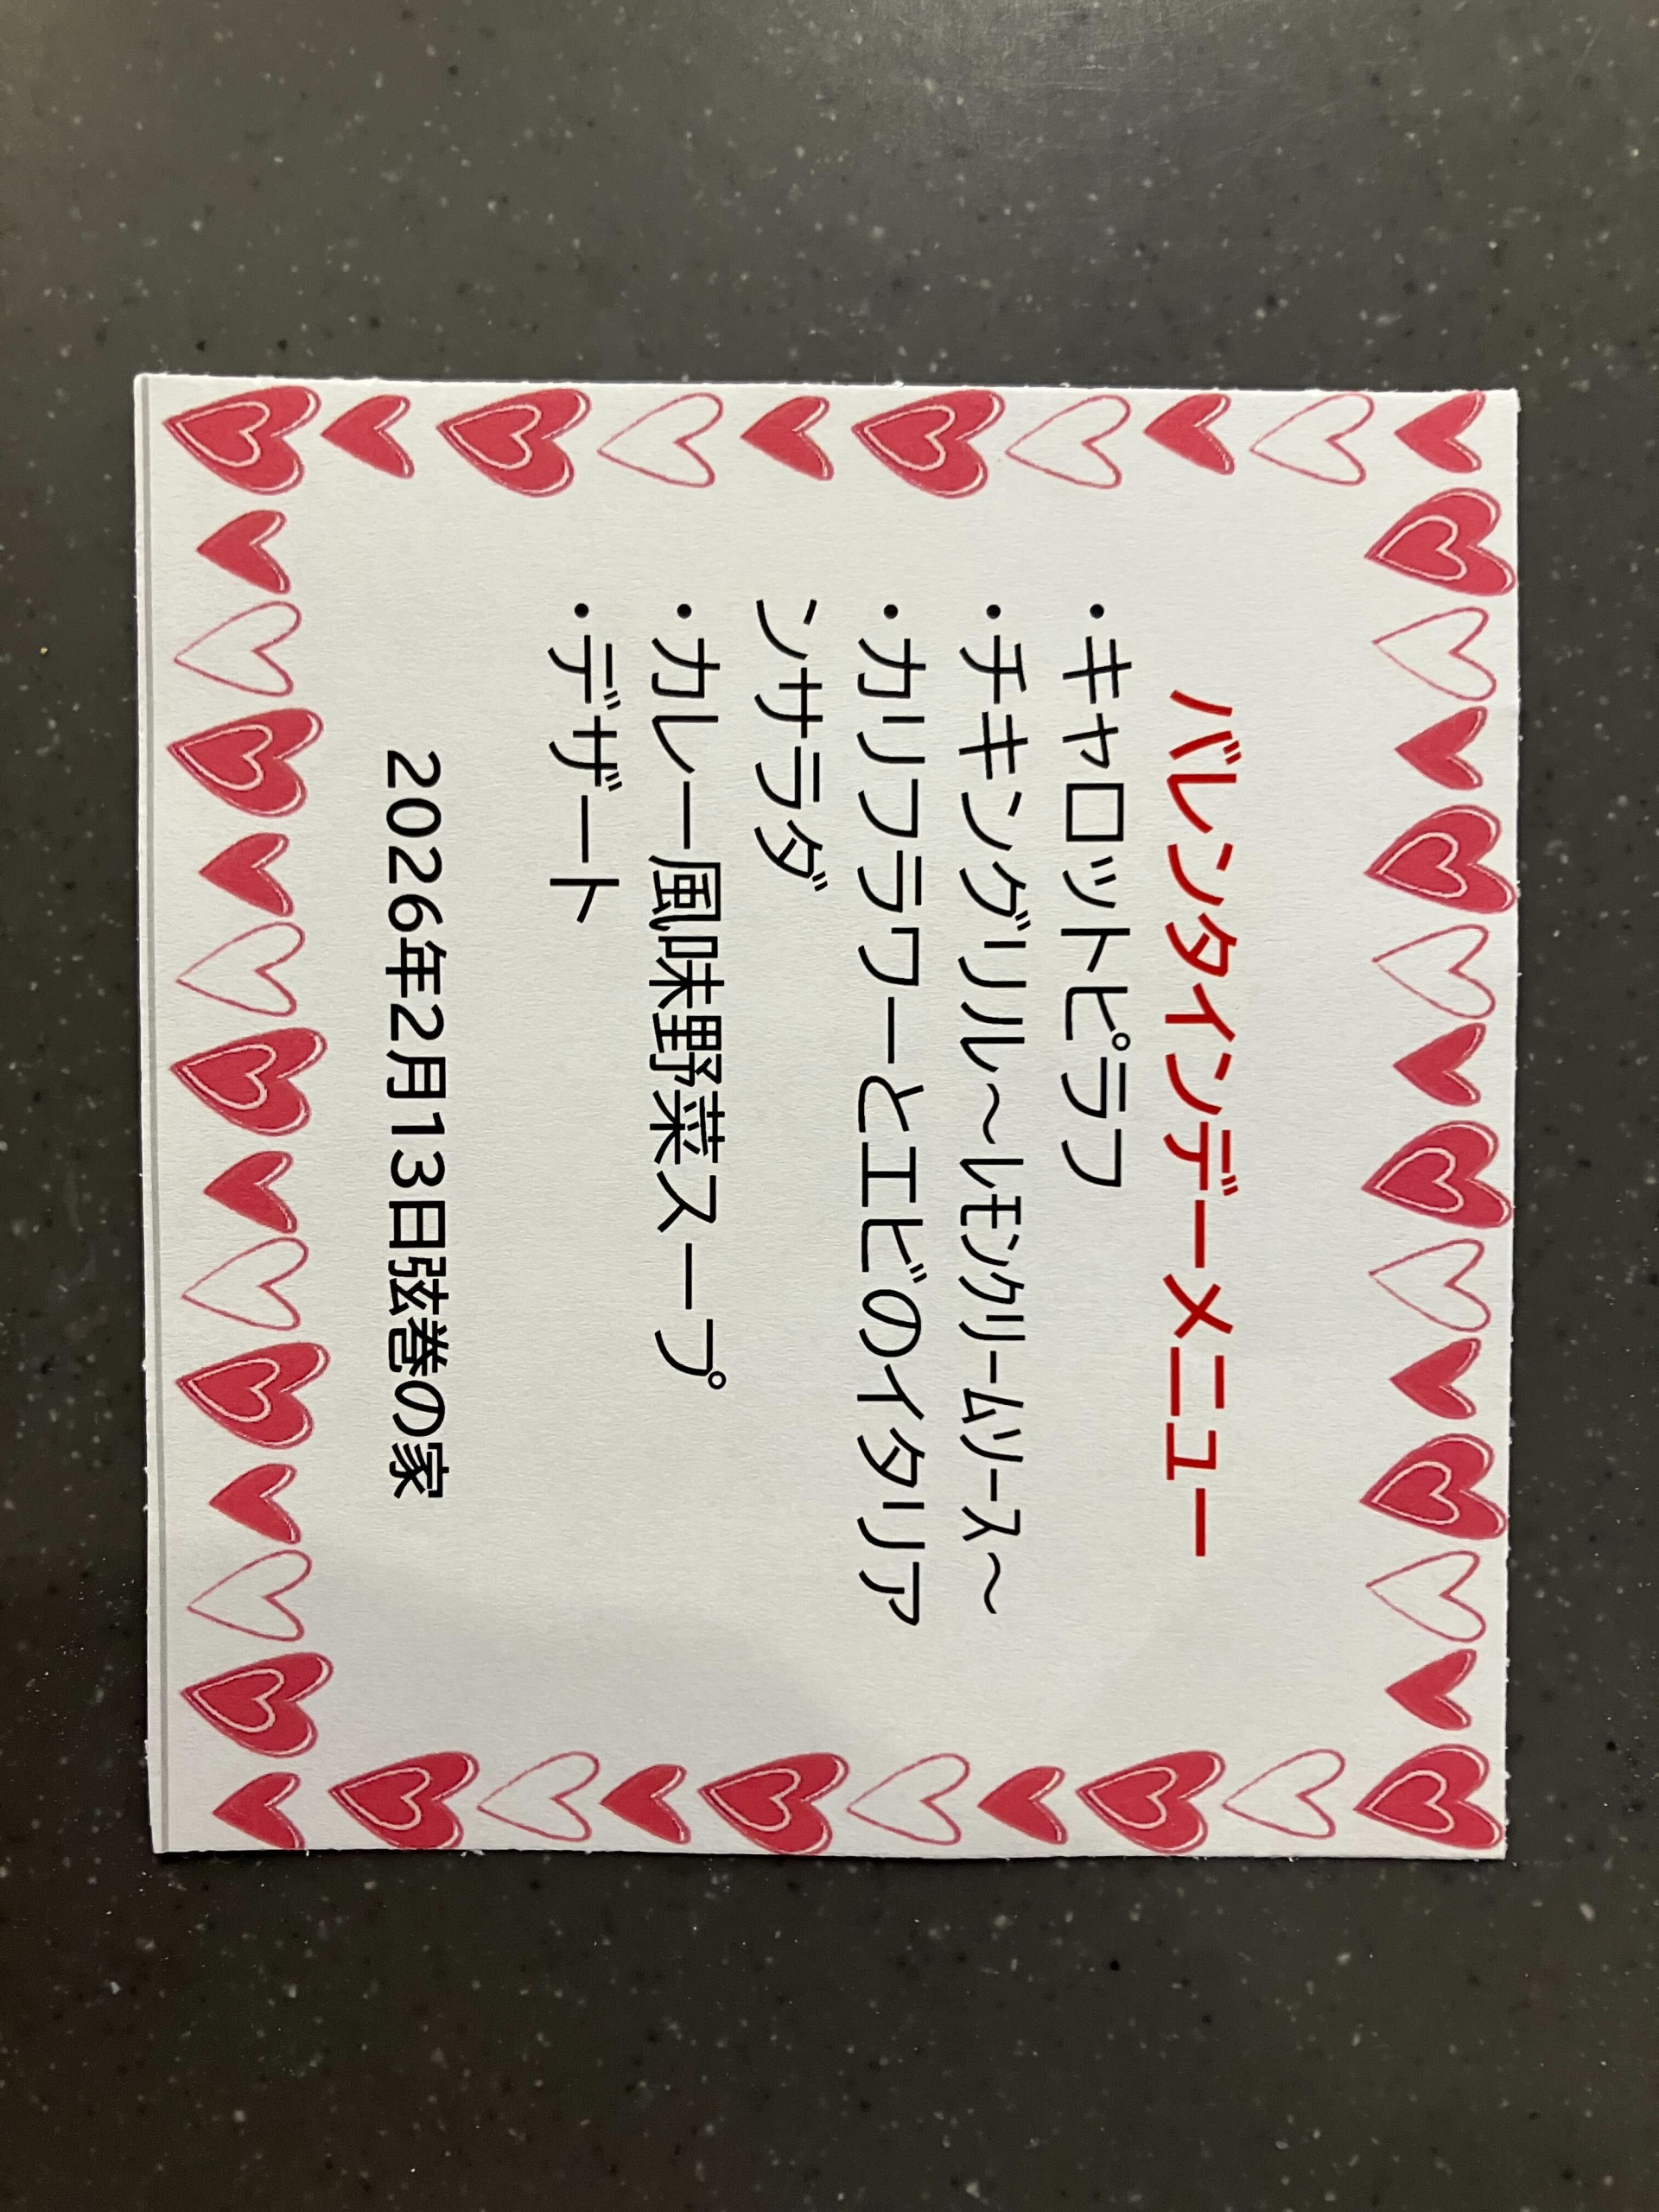 バレンタインデーメニュー
・キャロットピラフ
・チキングリル～ﾚﾓﾝｸﾘｰﾑｿｰｽ～
・カリフラワーとエビのイタリア
ンサラダ
・カレー風味野菜スープ
・デザート
2026年2月13日弦巻の家